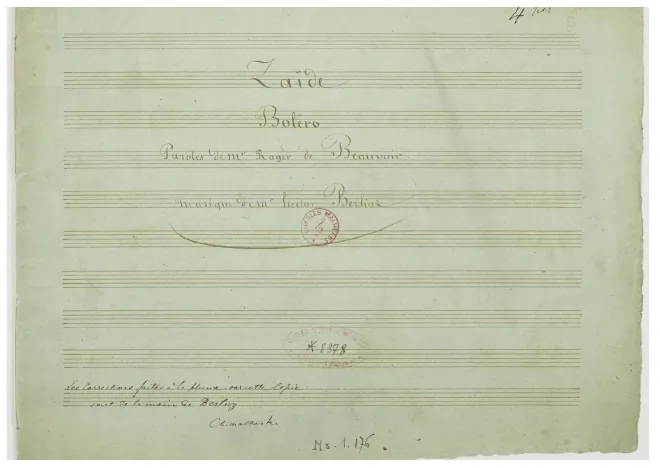 4
Zaïde
Boléro
Paroles de Mr Roger de Beauvoir
musique de Mr hector Berlioz
* 8878
Les Corrections faites à la plume sur cette Copie
sont de la main de Berlioz
Ms. 1.176.